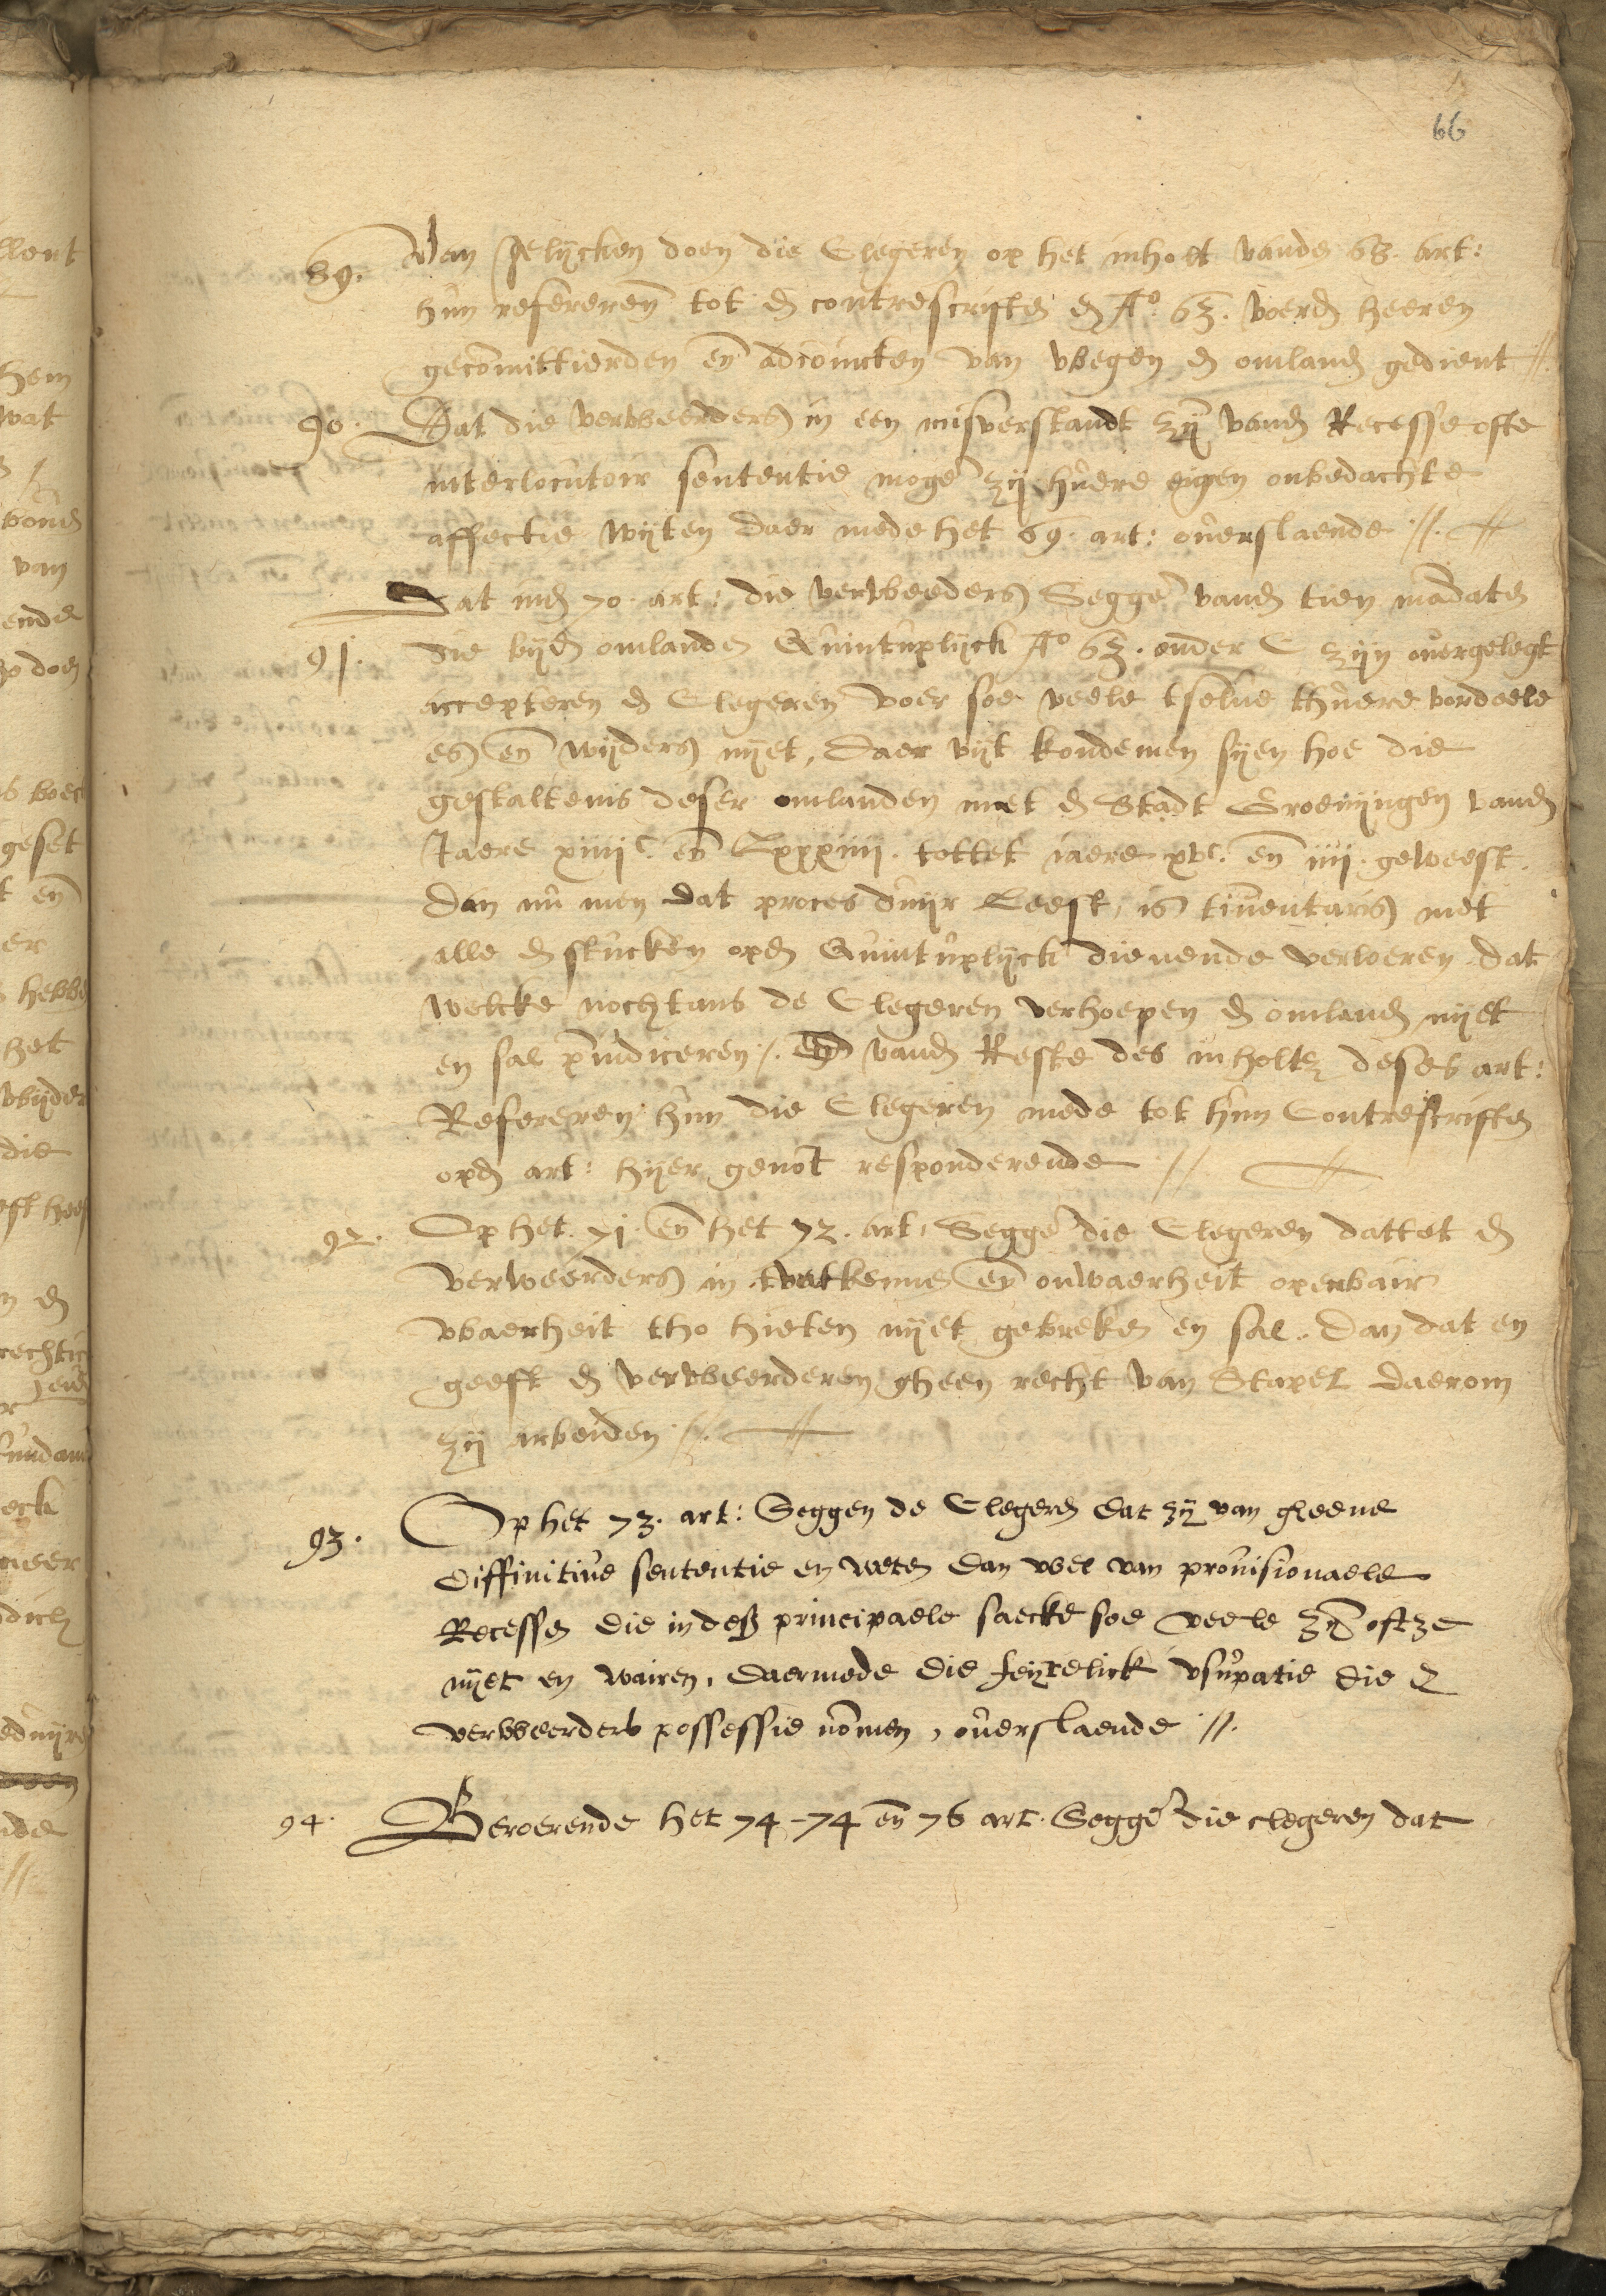 66
89. Van gelijcken doen die Clegeren op het inholt vande 68. art:
hun refereren tot d contrescriften d Ao. 63. voerd heeren
gecomittierden en adiouncten van wegen d omland gedient //.
90. Dat die verweerders in een misverstandt zij vand Recesse ofte
interlocutoir sententie moge zij huere eigen onbedachte
affectie wijten daer mede het 69. art: ouerslaende //.
Dat ind 70. art: die verweeders Segge vand tien madate
91. die bijd omlanden Quintuplijck Ao 63. onder C zijn ouergelegt
accepteren d Clegeren voer soe veele tselue thuere vordeele
es en wijders nijet, daer vijt kondemen sijen hoe die
gestaltenis deser omlanden met d Stadt Groenijngen vand
Jaere xiiijc. en Lxxxiiij. tottet iaere xvc. en iiij. geweest.
dan nu men dat proces duijr Leest, is tinuentaris met
alle d stucken opd Quintuplijck dienende verloeren dat
welcke nochtans de Clegeren verhoepen d omland nijet
en sal piudiceren /. vand Reste des inholtz deses art:
Refereren hun die Clegeren mede tot hun Contrescriften
opd art: hijer genot responderende //
92. Op het. 71. en het 72. art, Segge die Clegeren dattet d
verweerders in en onwaerheit openbair
waerheit tho hieten nijet gebreken en sal. dan dat en
geeft d verweerderen gheen recht van Stapel daerom
zij arbeiden //.
93. Op het 73. art: Seggen de Clegeren dat zij van gheene
diffinitiue sententie en weten dan wel van prouisionaele
Recessen die in principaele saecke soe veele zijn oft ze
nijet en wairen, daermede die feijtelick vsupatie die d
verweerders possessie nomen, ouerslaende //.
94. Beroerende het 74 - 74 en 76 art. Segge die clegeren dat